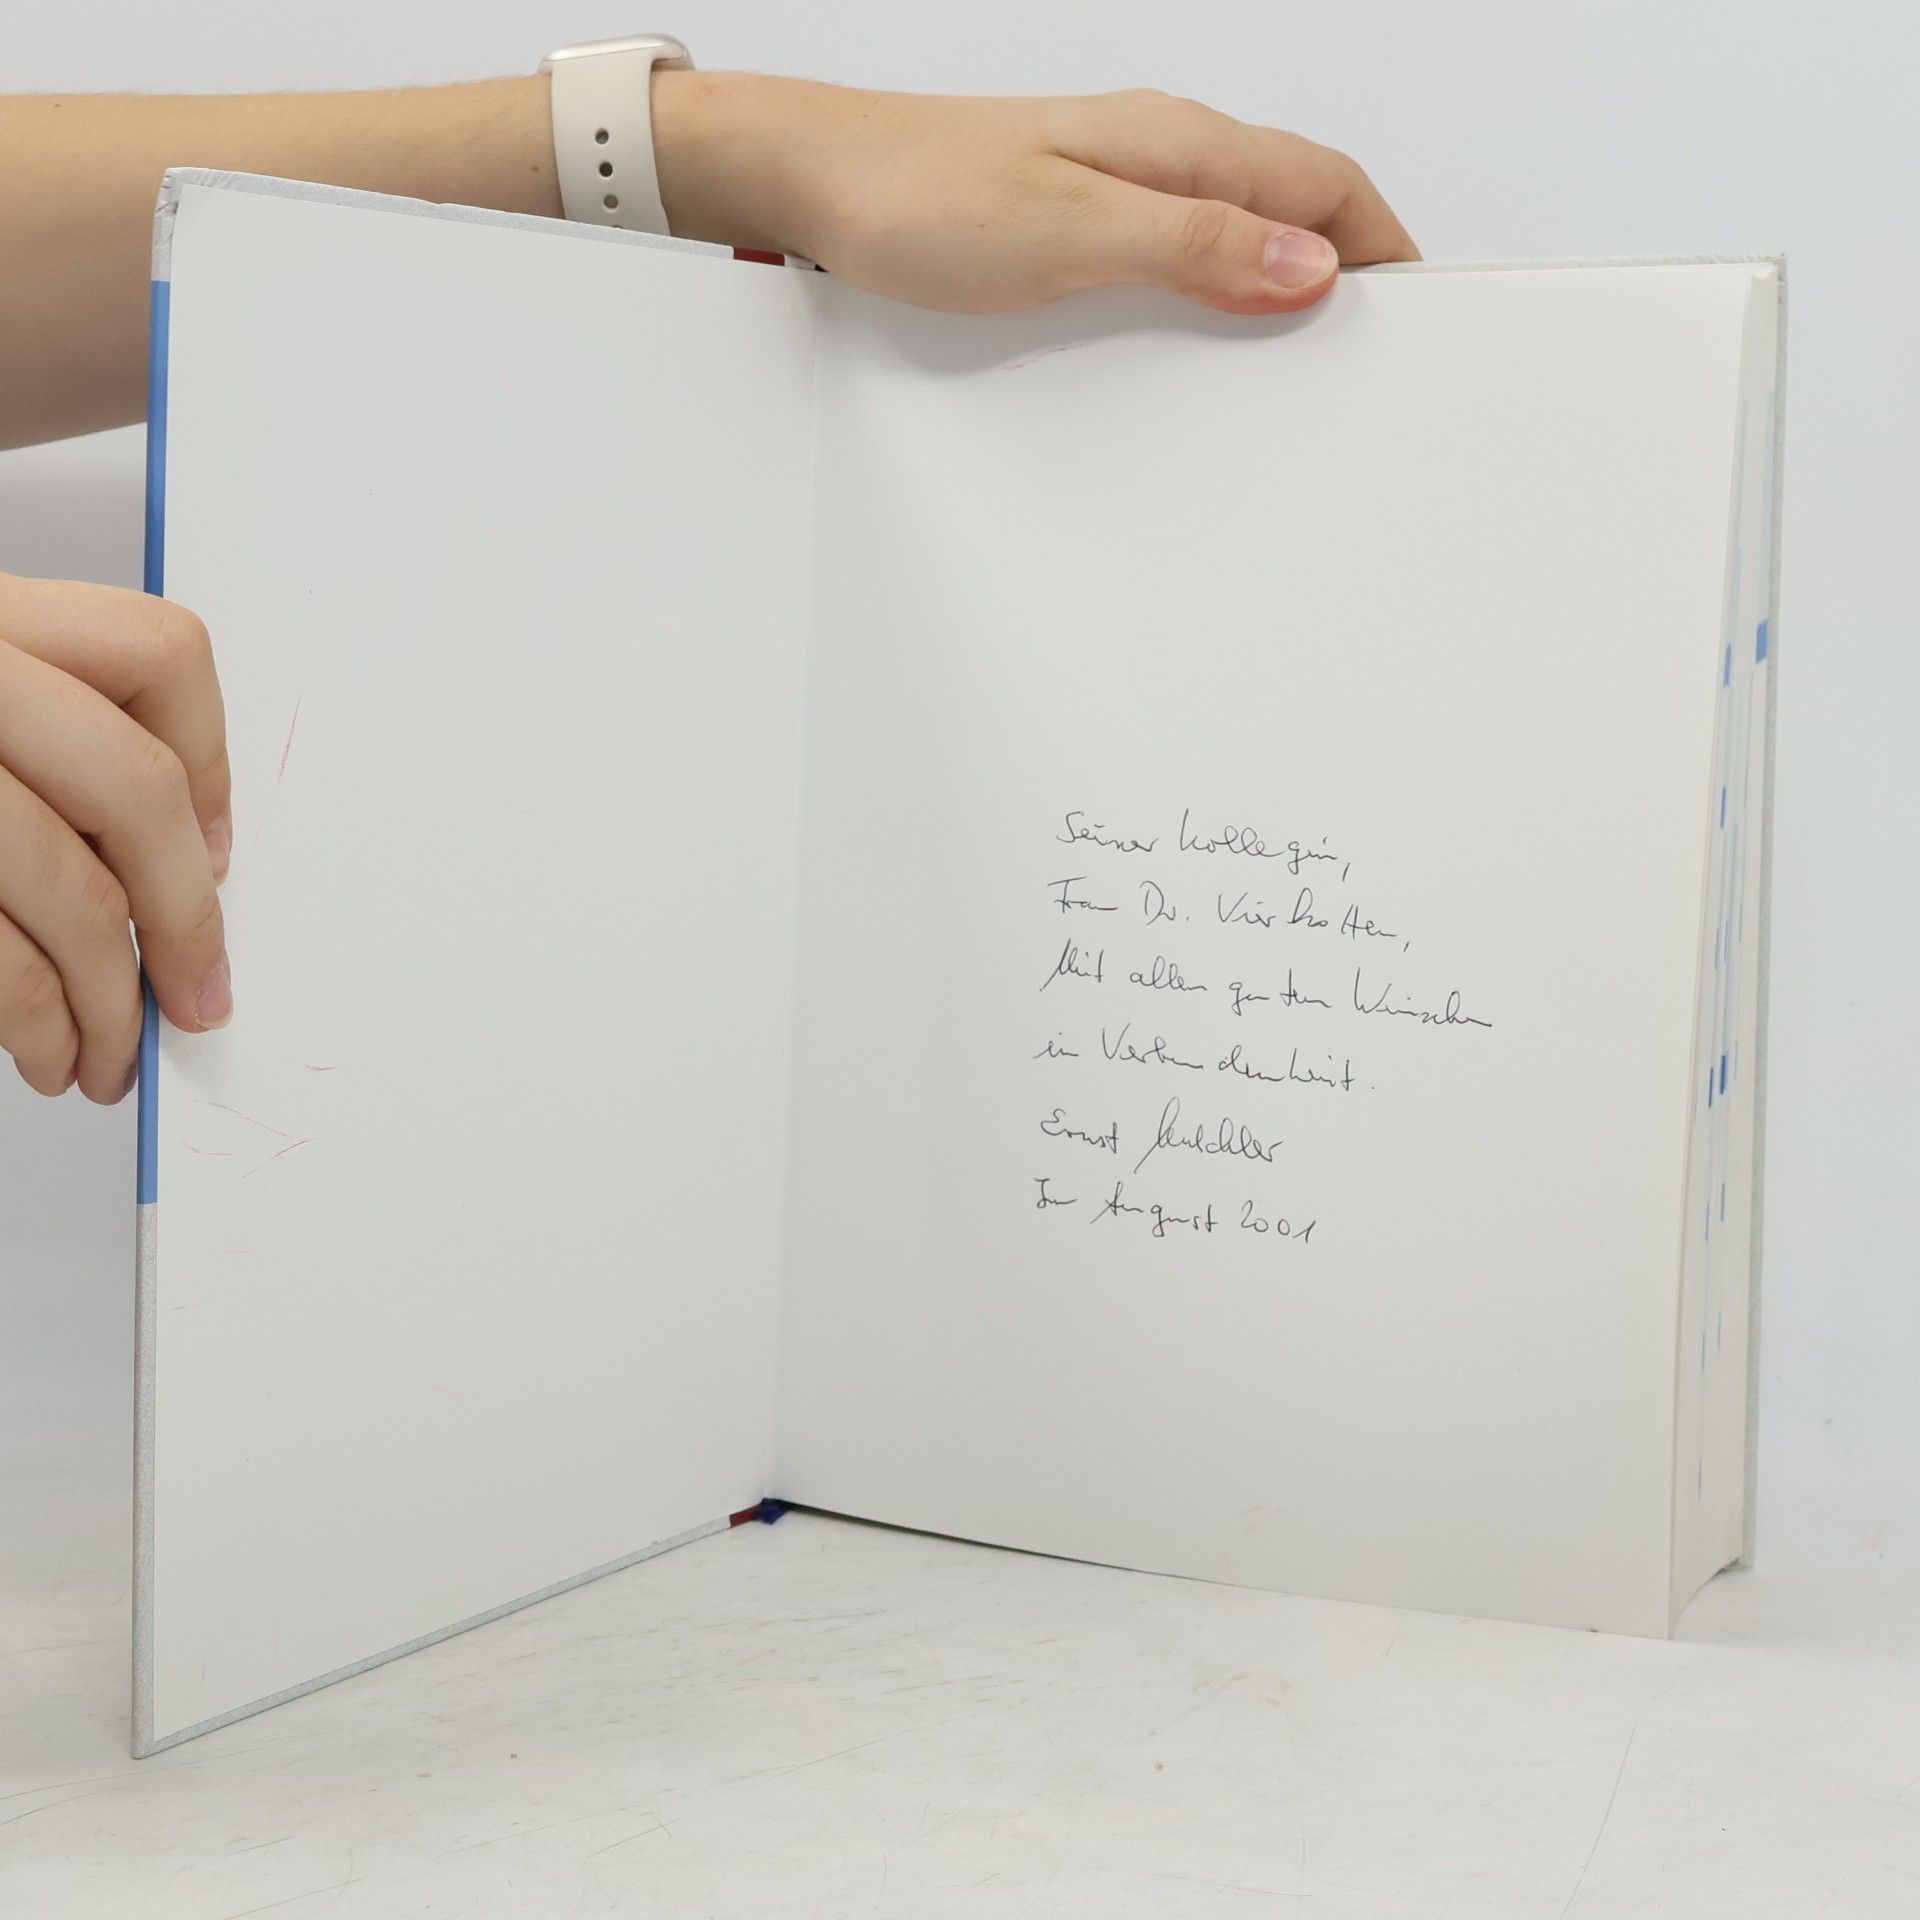 Seiner Kollegin,
Frau Dr. Vierkotten,
Mit allen guten Wünschen
in Verbundenheit.
Ernst
Im August 2001